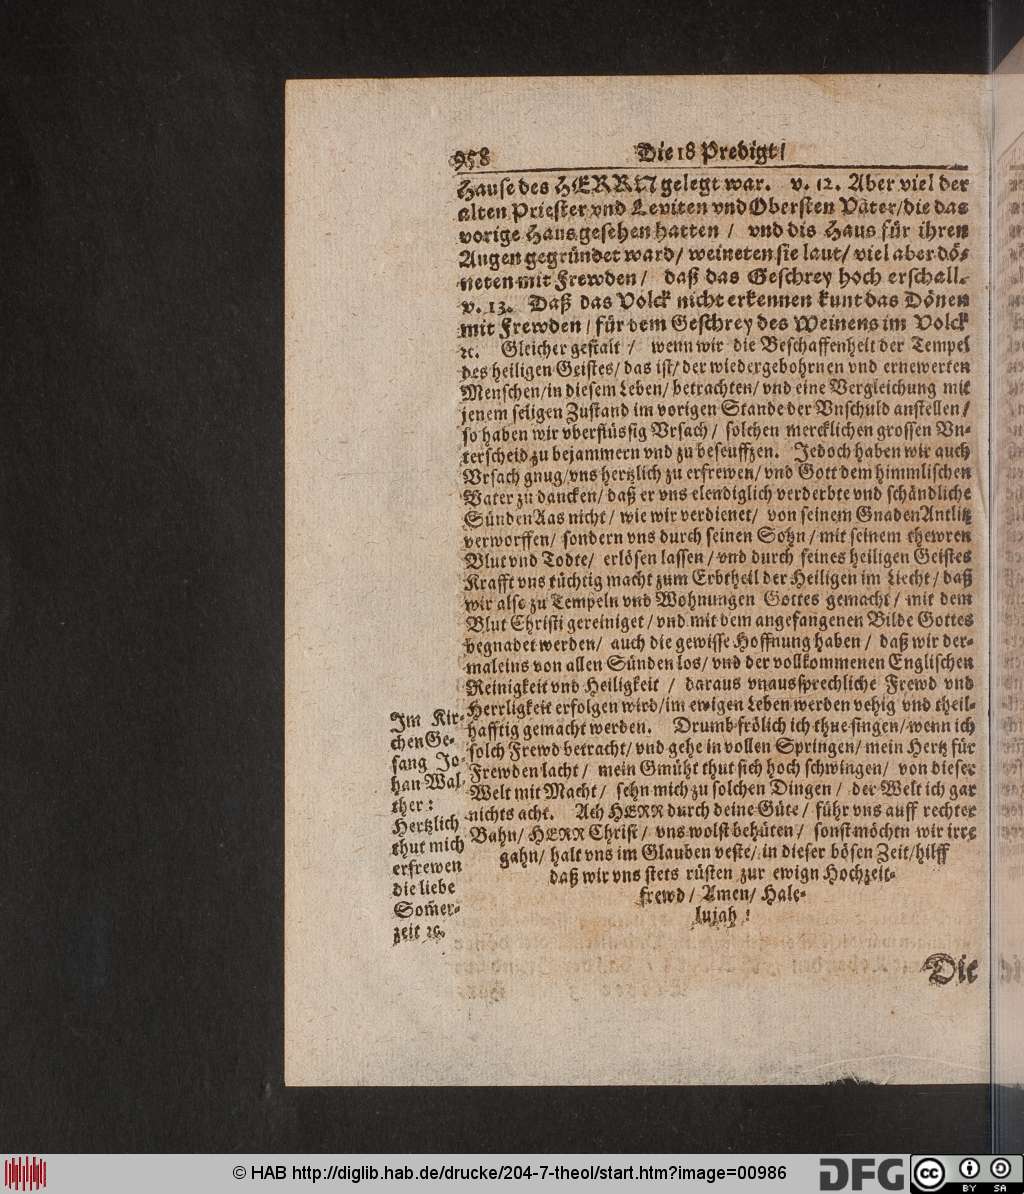 958 Die 18 Predigt /
Hause des HERRN gelegt war. v. 12. Aber viel der
alten Priester vnd Leviten vnd Obersten Väter/die das
vorige Haus gesehen hatten / vnd dis Haus für ihren
Augen gegründet ward/ weineten sie laut/ viel aber dö-
neten mit Frewden/ daß das Geschrey hoch erschall.
v. 13. Daß das Volck nicht erkennen kunt das Dönen
mit Frewden / für dem Geschrey des Weinens im Volck
ꝛc. Gleicher gestalt / wenn wir die Beschaffenheit der Tempel
des heiligen Geistes/ das ist/ der wiedergebohrnen vnd ernewerten
Menschen/in diesem Leben/ betrachten/ vnd eine Vergleichung mit
jenem seligen Zustand im vorigen Stande der Vnschuld anstellen/
so haben wir vberflüssig Vrsach/ solchen mercklichen grossen Vn-
terscheid zu bejammern vnd zu beseuffzen. Jedoch haben wir auch
Vrsach gnug/vns hertzlich zu erfrewen/ vnd Gott dem himmlischen
Vater zu dancken/ daß er vns elendiglich verderbte vnd schändliche
SündenAas nicht/ wie wir verdienet/ von seinem GnadenAntlitz
verworffen/ sondern vns durch seinen Sohn/ mit seinem thewren
Blut vnd Todte/ erlösen lassen/ vnd durch seines heiligen Geistes
Krafft vns tüchtig macht zum Erbtheil der Heiligen im Liecht/ daß
wir also zu Tempeln vnd Wohnungen Gottes gemacht/ mit dem
Blut Christi gereiniget/ vnd mit dem angefangenen Bilde Gottes
begnadet werden/ auch die gewisse Hoffnung haben/ daß wir der-
maleins von allen Sünden los/ vnd der vollkommenen Englischen
Reinigkeit vnd Heiligkeit / daraus vnaussprechliche Frewd vnd
Herrligkeit erfolgen wird/im ewigen Leben werden vehig vnd theil-
hafftig gemacht werden. Drumb frölich ich thue singen/ wenn ich
solch Frewd betracht/ vnd gehe in vollen Springen/ mein Hertz für
Frewden lacht/ mein Gmüht thut sich hoch schwingen/ von dieser
Welt mit Macht/ sehn mich zu solchen Dingen/ der Welt ich gar
nichts acht. Ach HERR durch deine Güte/ führ vns auff rechter
Bahn/ HERR Christ/ vns wolst behüten/ sonst möchtn wir irre
gahn/ halt vns im Glauben veste/ in dieser bösen Zeit/hilff
daß wir vns stets rüsten zur ewign Hochzeit-
frewd/ Amen/ Hale-
lujah!
Im Kir-
chen Ge-
sang Jo-
han Wal-
ther:
Hertzlich
thut mich
erfrewen
die liebe
Som̃er-
zeit ꝛc.
Die
© HAB http://diglib.hab.de/drucke/204-7-theol/start.htm?image=00986
DFG
cc BY SA